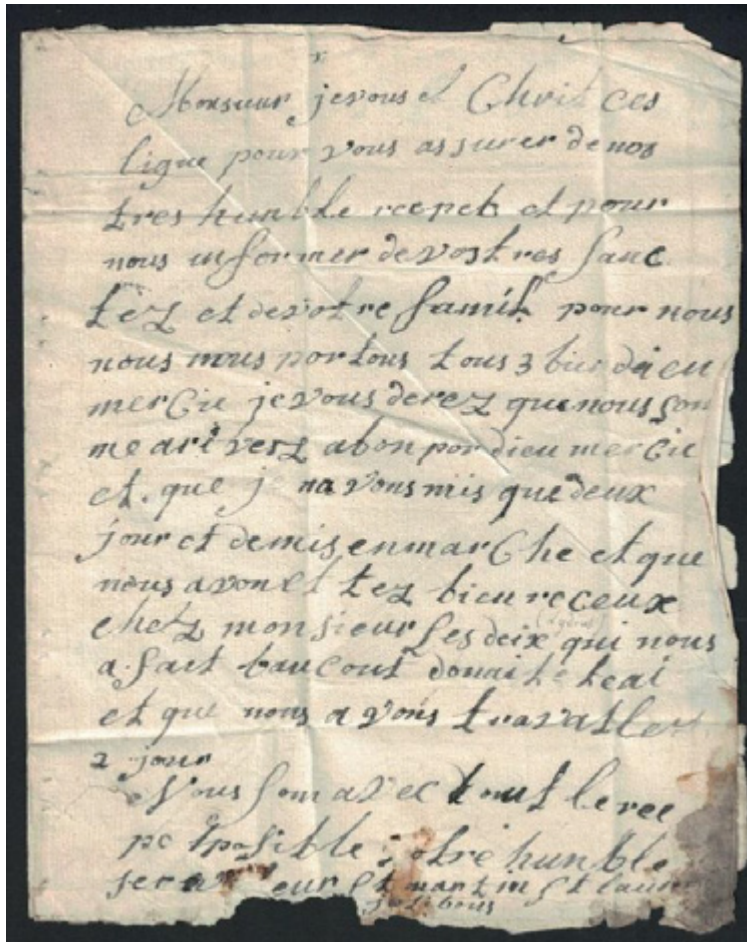 Monsieur jevous el Chrit ces
ligne pour vous assurer de nos
tres humble recpet et pour
nous informer de vostres sanc
téz et devotre famil pour nous
nous nous portons tous 3 bien dieu
mercie je vous derez que nous som
me arivez abon por dieu mercie
et que je navons mis que deux
jour et demis en marche et que
nous avon et téz bien receux
chez monsieur qui nous
a fait baucout
et que nous avons travaller
2 jour
Nous som avec tout le rec
pet posible votre humble
St martin St